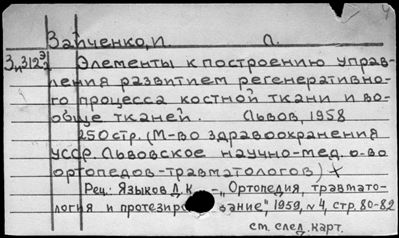 Зайченко, И. П.
З₁₁312²
Элементы к построению управ-
ления развитием регенеративно-
го процесса костной ткани и во-
обще тканей. Львов, 1958
250 стр. (М-во здравоохранения
УССР. Львовское научно-мед. о-во
ортопедов-травматологов)
Рец.: Языков Д.К. – „Ортопедия, травмато-
логия и протезиро вание", 1959, №4, стр. 80-82
см. след. карт.